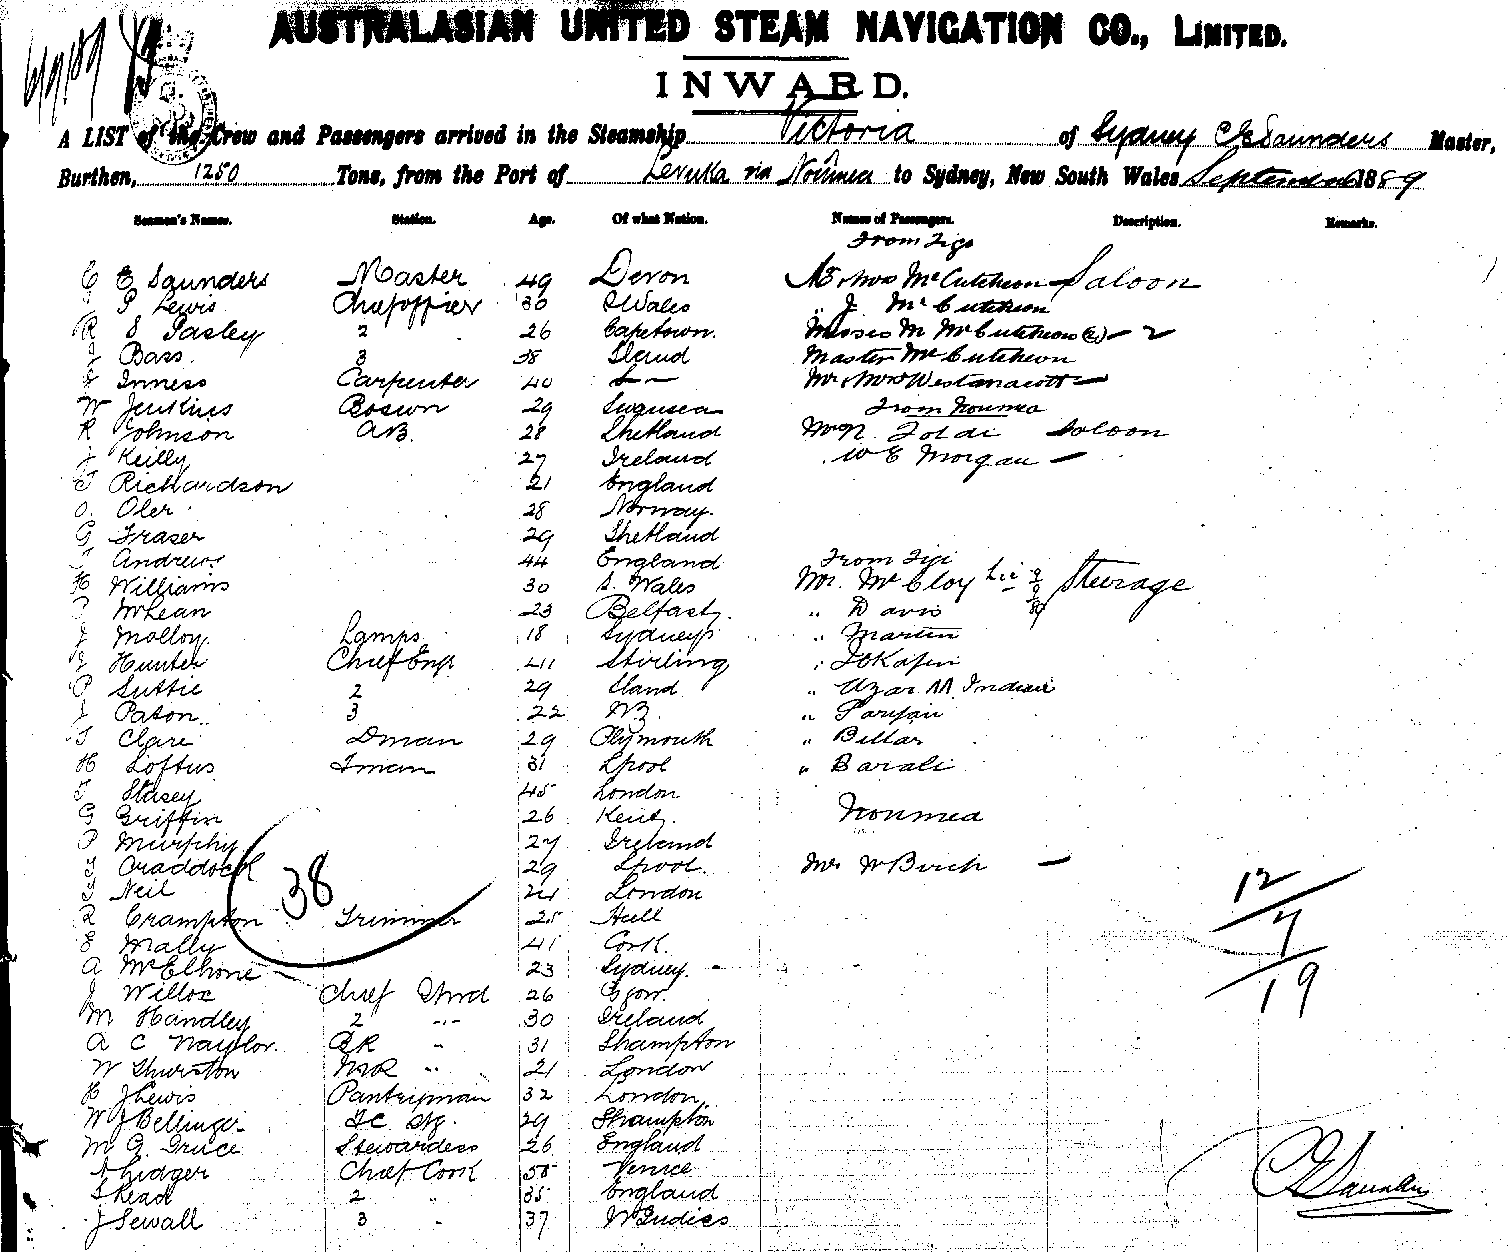 AUSTRALASIAN UNITED STEAM NAVIGATION CO., LIMITED.
INWARD.
A LIST of the Crew and Passengers arrived in the Steamship Victoria of Sydney C E Saunders Master,
Burthen, 1250 Tons, from the Port of Levuka via Noumea to Sydney, New South Wales September 1889
Seamen's Names. Station. Age. Of what Nation. Names of Passengers. Description. Remarks.
From Fiji
C E Saunders Master 49 Devon Mr & Mrs McCutcheon Saloon
P Lewis Chief officer 30 S Wales " J McCutcheon
R S Pasley 2 26 Capetown. Misses M McCutcheon (2) - 2
J Bass 3 38 Master McCutcheon
Inness Carpenter 40 Mr & Mrs Westanacott -
W Jenkins Boswn 29 Swansea From Noumea
R Johnson AB. 28 Shetland Saloon
J Keilly 27 Ireland W E Morgan -
Richardson 21 England
O. Oler 28 Norway.
G Fraser 29 Shetland
Andrews 44 England From Fiji
H Williams 30 S. Wales Mr. McCloy Steerage
McLean 23 Belfast. " Davis
Molloy Lamps 18 Sydney " Martin
Hunter Chief Eng 41 Stirling "
P Suttie 2 29 " Indian
J Paton 3 22 NZ "
T Clare Dman 29 Plymouth " Billar
H Loftus Fman 31 Lpool " Barali
Stasey 45 London
G Griffin 26 Kent. Noumea
P Murphy 27 Ireland
Craddock 29 Lpool. Mr W Birch -
Neil London
38
12
R Crampton Trimmer 25 Hull
7
E Mally 41 Cork.
A McElhone 23 Sydney. -
19
J Willox Chief Stwd 26 Sgow.
M Handley 2 " 30 Ireland
A C Naylor. BR " 31 Shampton
W Thurston MR " 21 London
H J Lewis Pantryman 32 London
W J Bellinger 29 Shampton
M G Gruce Stewardess 26 England
Lidger Chief Cook 55 Venice
Read 2 " 35 England
J Sewall 3 " 37 W Indies
C E Saunders